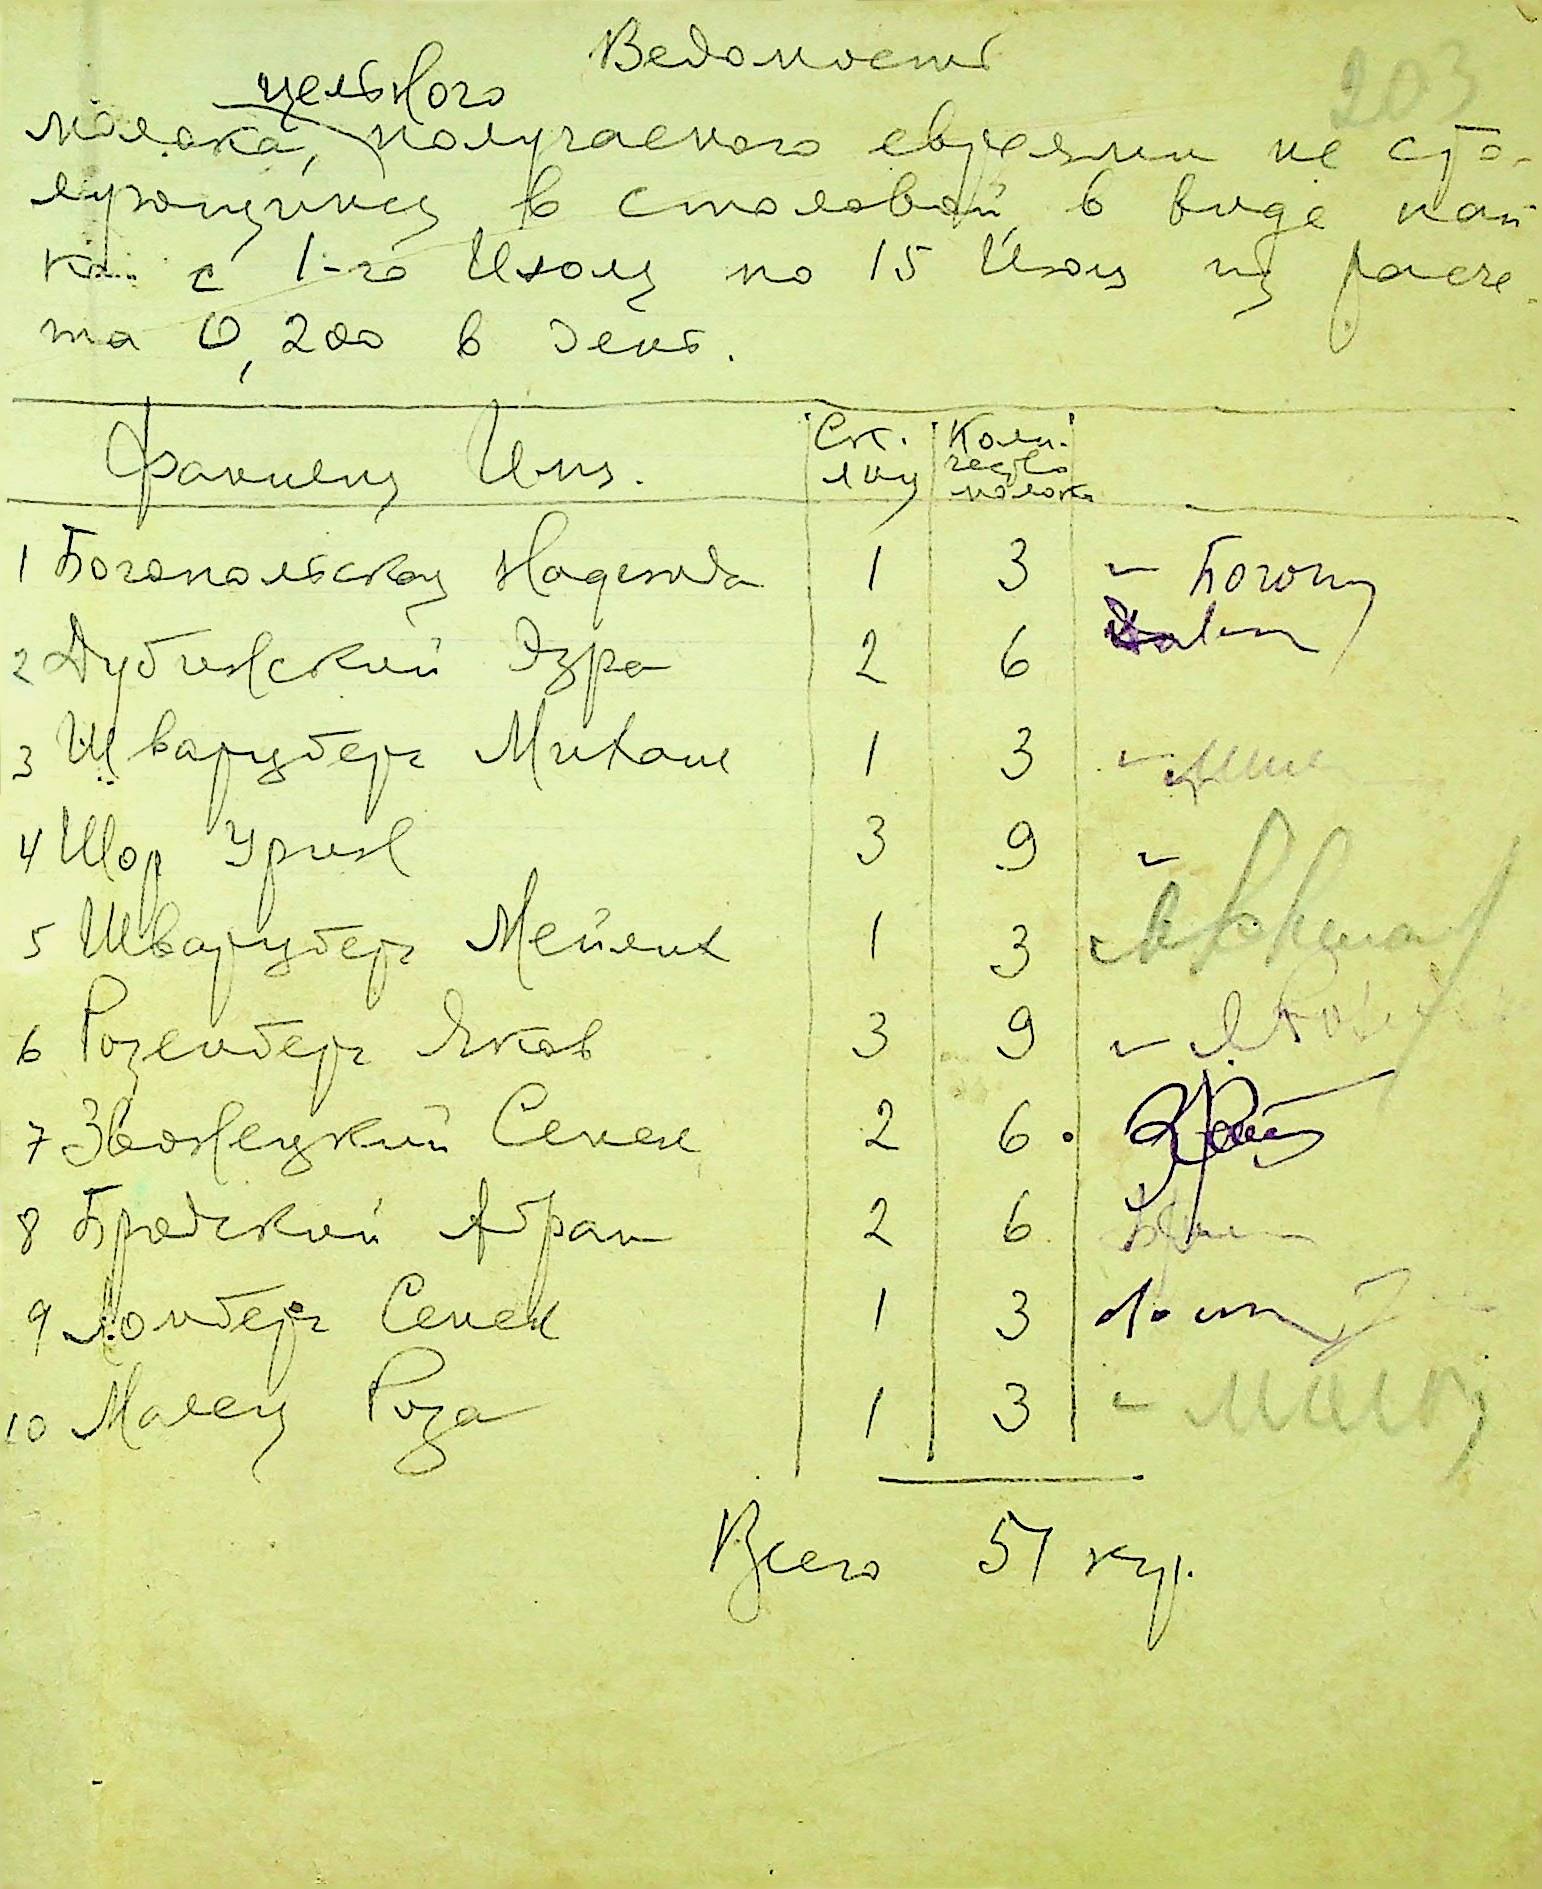 Ведомость
203
цельного
молока, получаемого евреями не сто-
лующимися в столовой в виде пай
ка с 1-го Июля по 15 Июля из расче-
та 0,200 в день.
Фамилия Имя. Ск. лиц Коли- чество молока
1 Богопольская Надежда 1 3 Богопол
2 Дубинский Эзра 2 6
3 Шварцберг Михаил 1 3
4 Шор Урин 3 9
5 Шварцберг Мейлих 1 3
6 Розенберг Яков 3 9
7 Звонецкий Семен 2 6
8 Бродский Абрам 2 6
9 Ломберг Семен 1 3
10 Малец Роза 1 3
Всего 51 кгр.